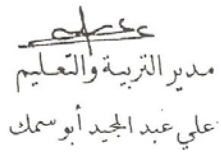 مدير التربية والتعليم
علي عبد المجيد أبو سمك